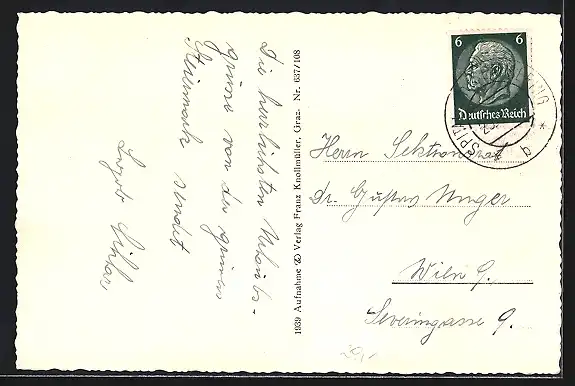 Die herzlichsten Urlaubs-
grüsse von der grünen
Steiermark sendet
1939 Aufnahme Verlag Franz Knollmüller, Graz. Nr. 637/108
6 6
Deutsches Reich
SPITAL
Herrn Sektionsrat
Dr. Gustav Unger
Wien 9.
Severingasse 9.